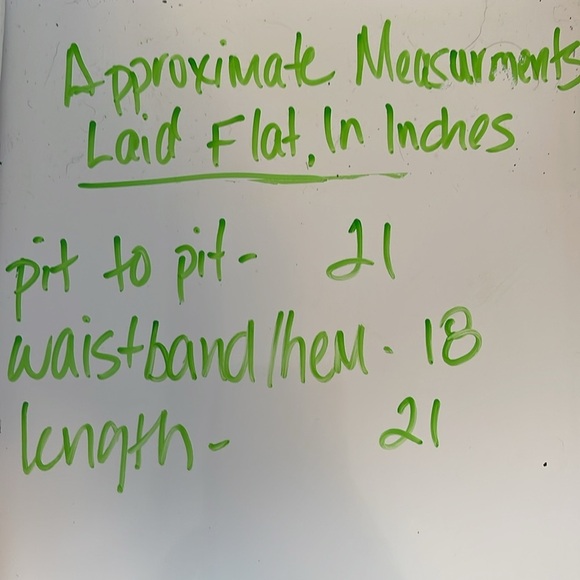 Approximate Measurments
Laid Flat, In Inches
pit to pit - 21
waistband/hem - 18
length - 21